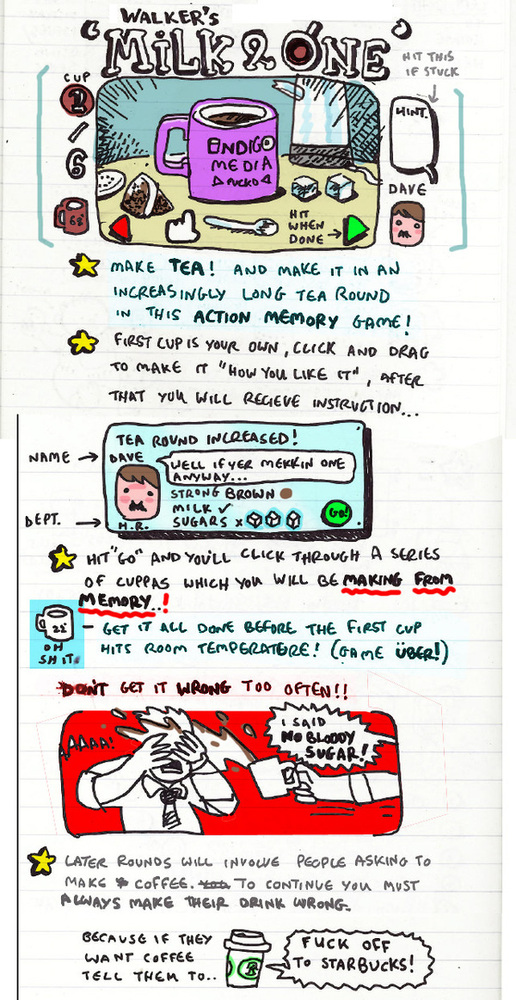 WALKER'S
"MiLK & ONE"
HIT THIS
IF STUCK
CUP
2
/
6
68
HINT.
DAVE
INDIGO
MEDIA
PUCKO
HIT
WHEN
DONE
MAKE TEA! AND MAKE IT IN AN
INCREASINGLY LONG TEA ROUND
IN THIS ACTION MEMORY GAME!
FIRST CUP IS YOUR OWN, CLICK AND DRAG
TO MAKE IT "HOW YOU LIKE IT", AFTER
THAT YOU WILL RECIEVE INSTRUCTION...
TEA ROUND INCREASED!
NAME
DAVE
WELL IF YER MEKKIN ONE
ANYWAY...
STRONG BROWN
MILK ✓
SUGARS x
GO!
DEPT.
H.R.
HIT "GO" AND YOU'LL CLICK THROUGH A SERIES
OF CUPPAS WHICH YOU WILL BE MAKING FROM
MEMORY..!
22°
OH
SHIT.
- GET IT ALL DONE BEFORE THE FIRST CUP
HITS ROOM TEMPERATERE! (GAME ÜBER!)
DON'T GET IT WRONG TOO OFTEN!!
AAAAA!
I SAID
NO BLOODY
SUGAR!
LATER ROUNDS WILL INVOLVE PEOPLE ASKING TO
MAKE COFFEE. YOU TO CONTINUE YOU MUST
ALWAYS MAKE THEIR DRINK WRONG.
BECAUSE IF THEY
WANT COFFEE
TELL THEM TO..
FUCK OFF
TO STARBUCKS!